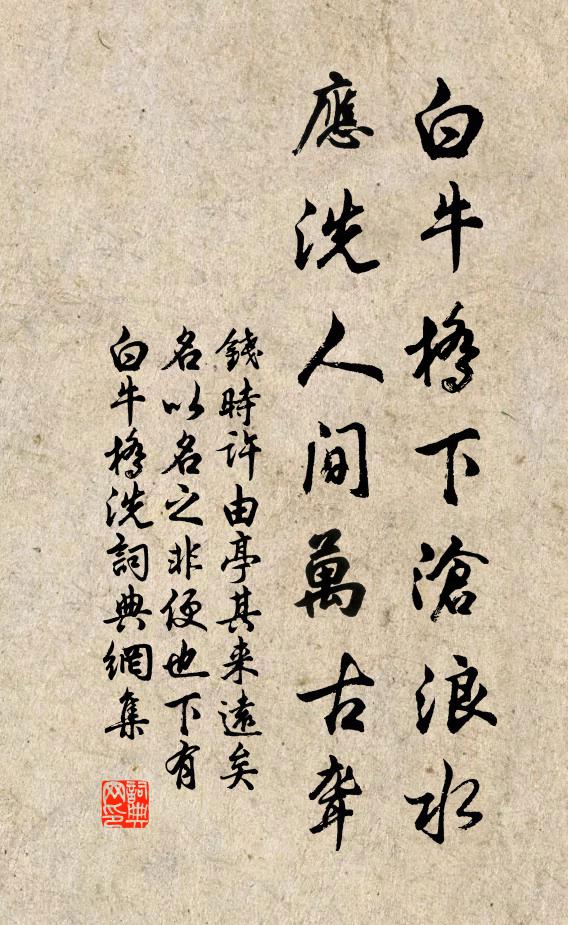 白牛橋下滄浪水
應洗人間萬古聾
錢時許由亭其来遠矣
名以名之非便也下有
白牛橋洗詞典網集
詞典
网印